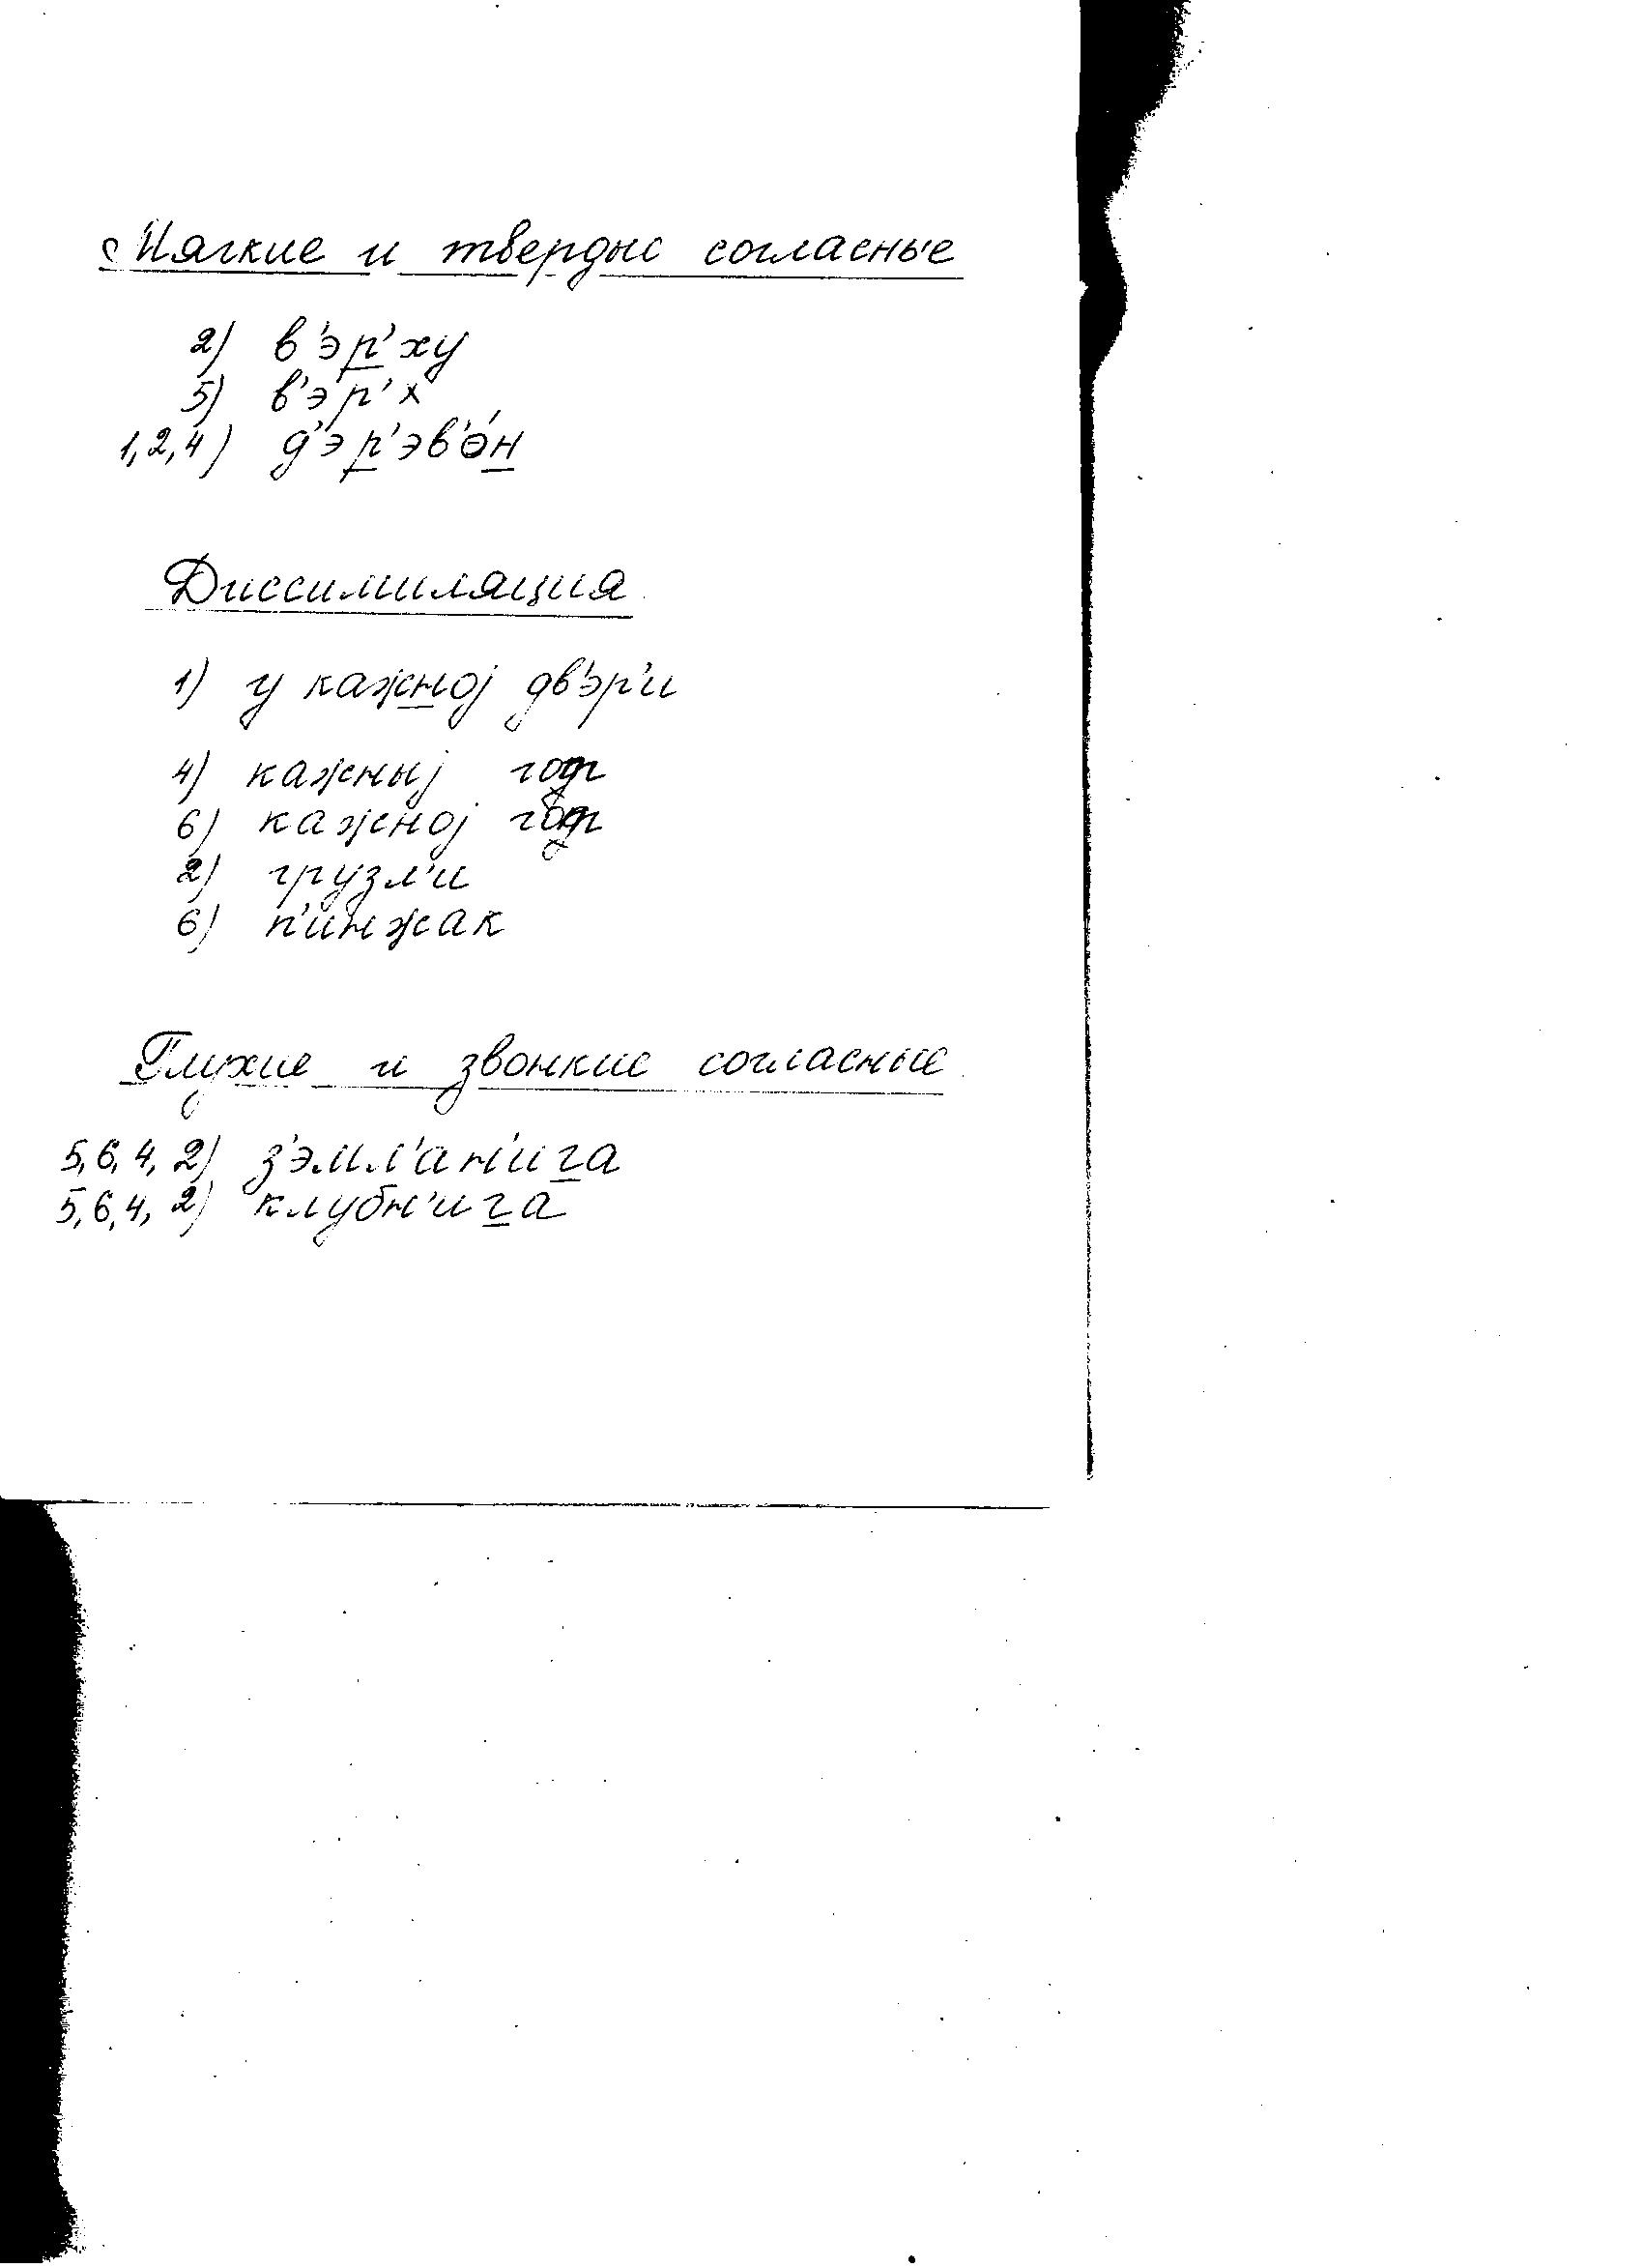 Мягкие и твердые согласные
2) в'эр'ху
5) в'эр'х
1,2,4) д'эр'эв'о́н
Диссимиляция
1) у кажноj дв'эр'и
4) кажныj год
6) кажноj год
2) грузл'и
6) п'инжак
Глухие и звонкие согласные
5,6,4,2) з'эмл'ан'ига
5,6,4,2) клубн'ига